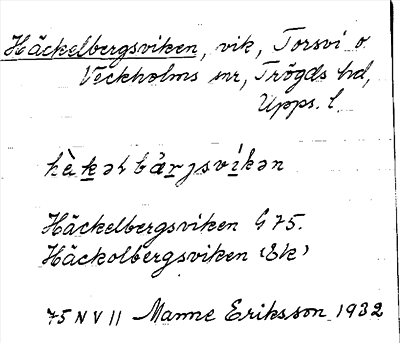 Häckelbergsviken, vik, Torsvi o
Veckholms snr, Trögds hd,
Upps. l.
hèkəlbärjsvíkən
Häckelbergsviken G 75.
Häckolbergsviken (Ek)
75 N V 11 Manne Eriksson 1932